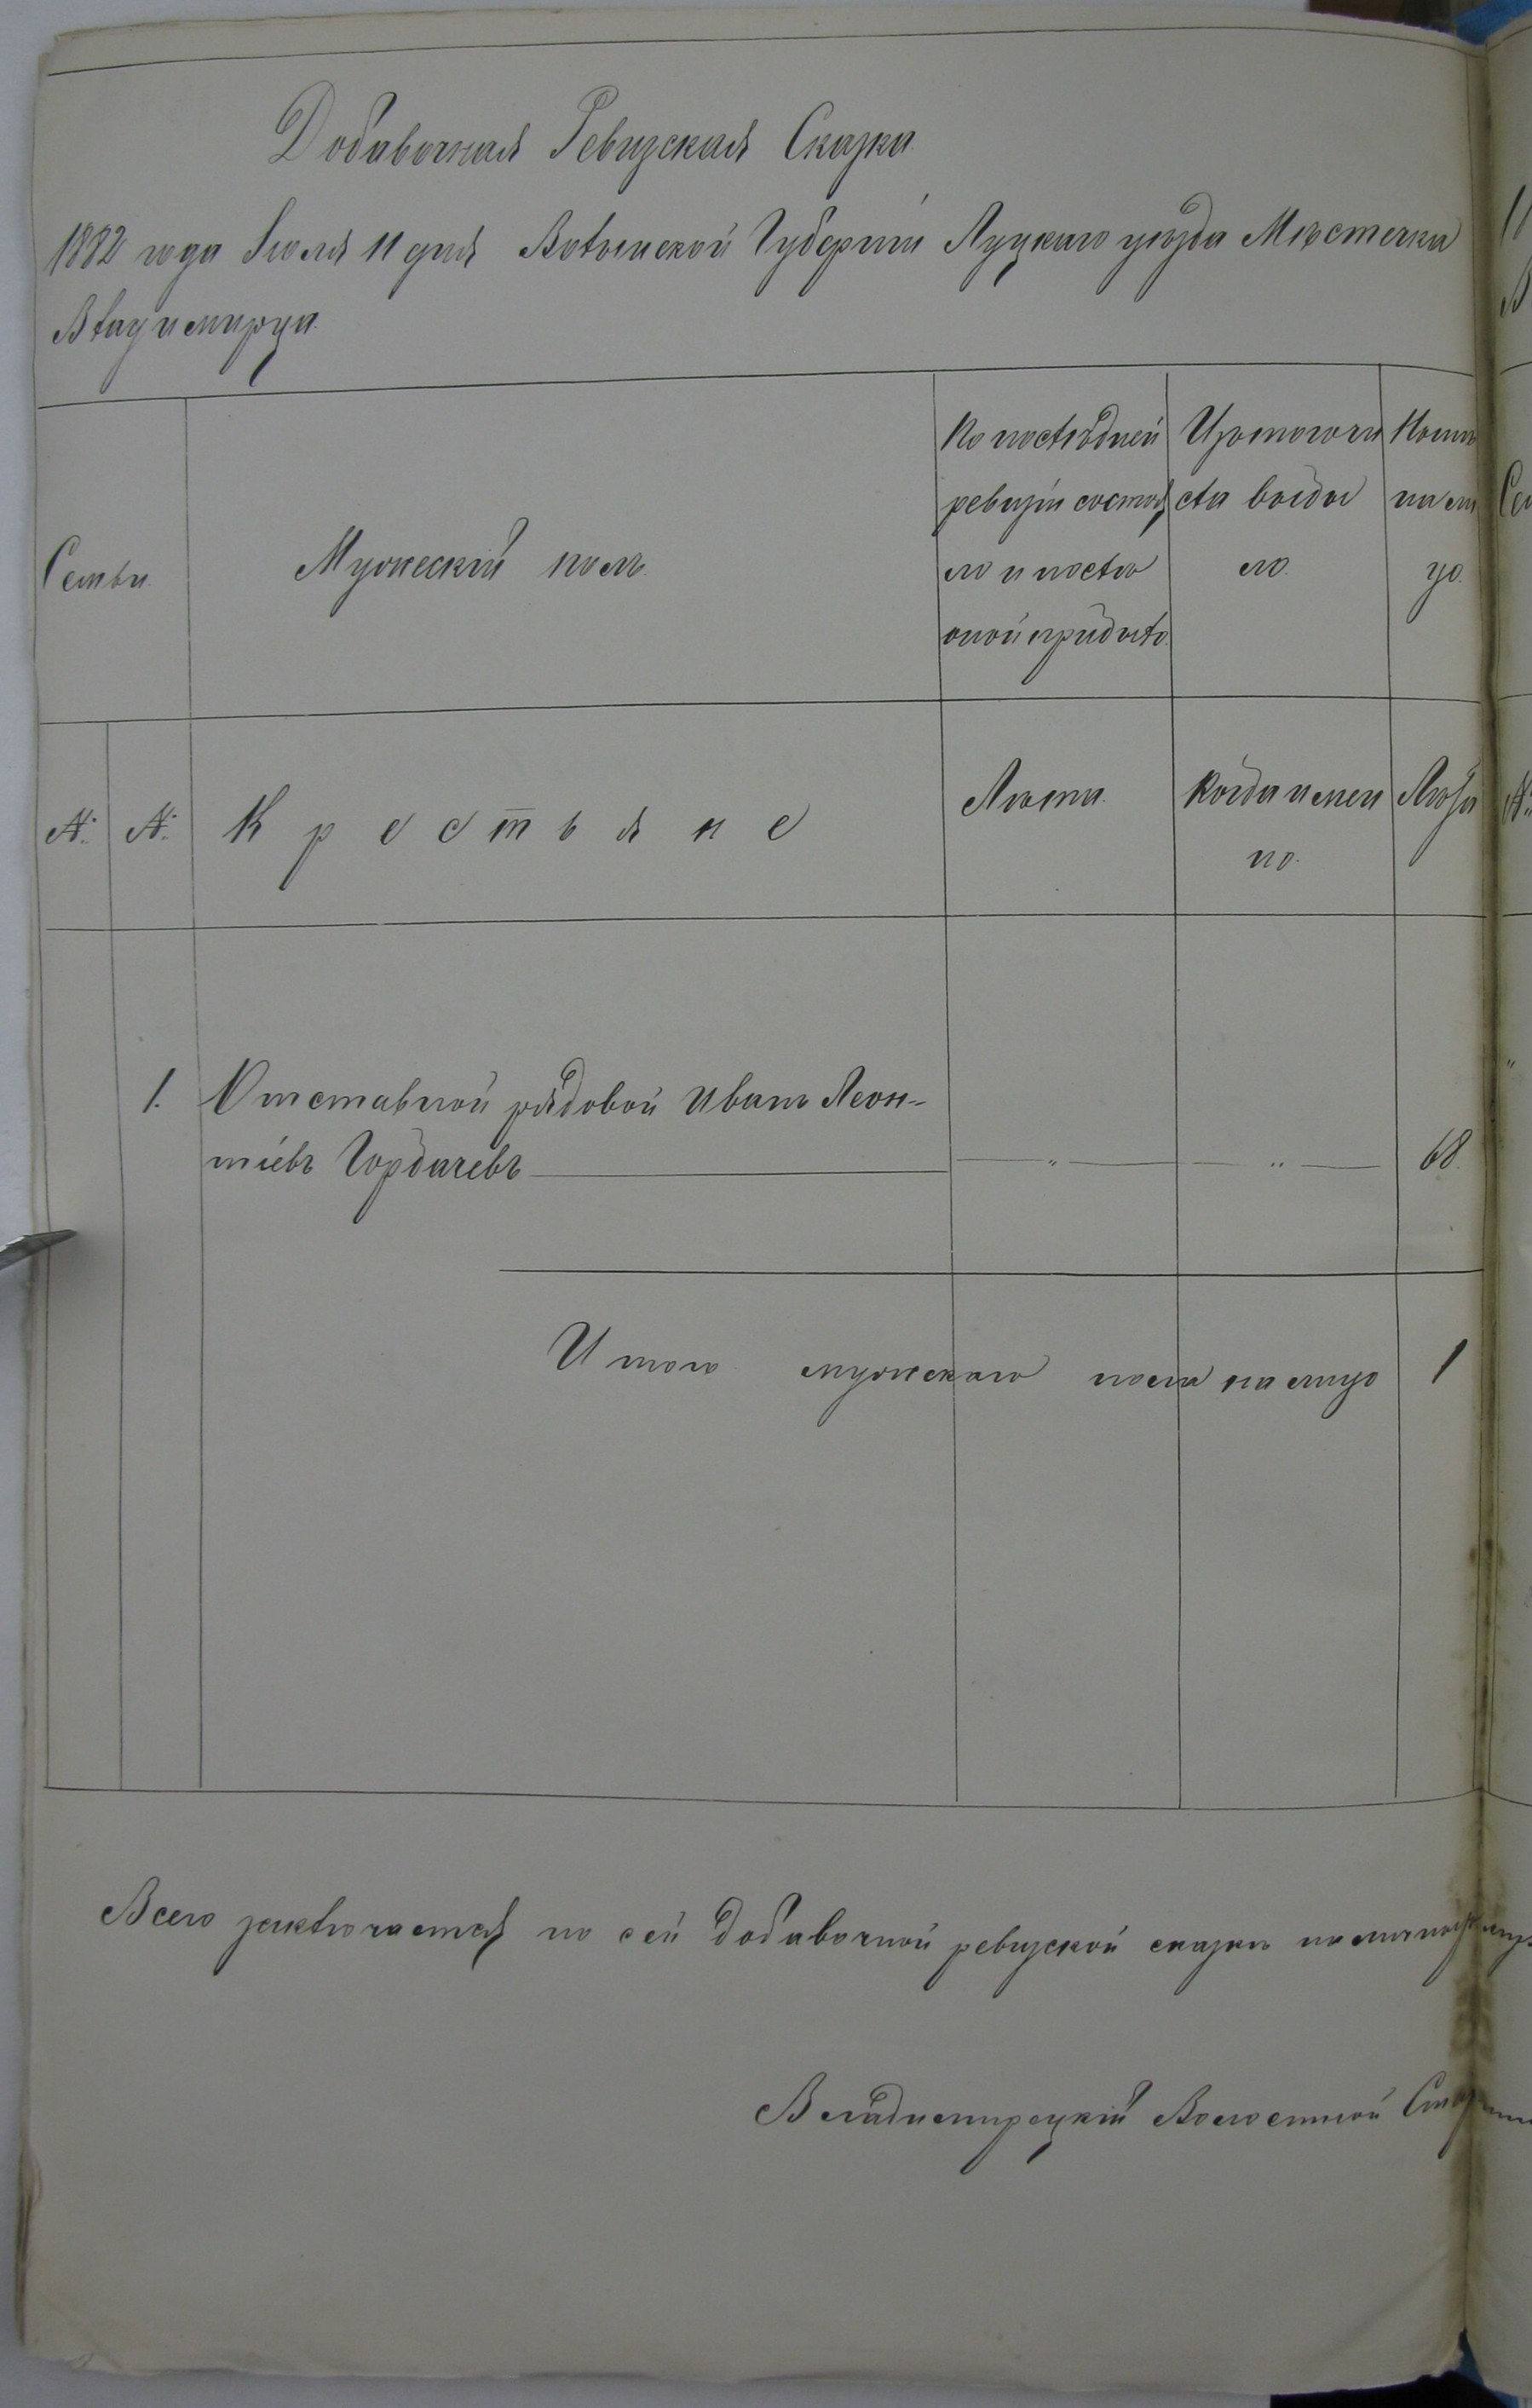 Добавочная Ревизская Сказка
1882 года Іюля 11 дня Волынской Губерніи Луцкаго уѣзда Мѣстечка
Владимирца.
Семьи.
Мужескій полъ.
По послѣдней
ревизіи состоя
ло и послѣ
оной прибыло.
Изъ того чи
сла выбы
ло.
Нынѣ
на ли
цо.
№
№
Крестьяне
Лѣта.
Когда имен
но.
Лѣта
1. Отставной рядовой Иванъ Леон-
тіевъ Горбачевъ — " — — " — 68.
Итого мужескаго пола на лицо 1
Всего заключается по сей добавочной ревизской сказкѣ
Владимирецкій Волостной